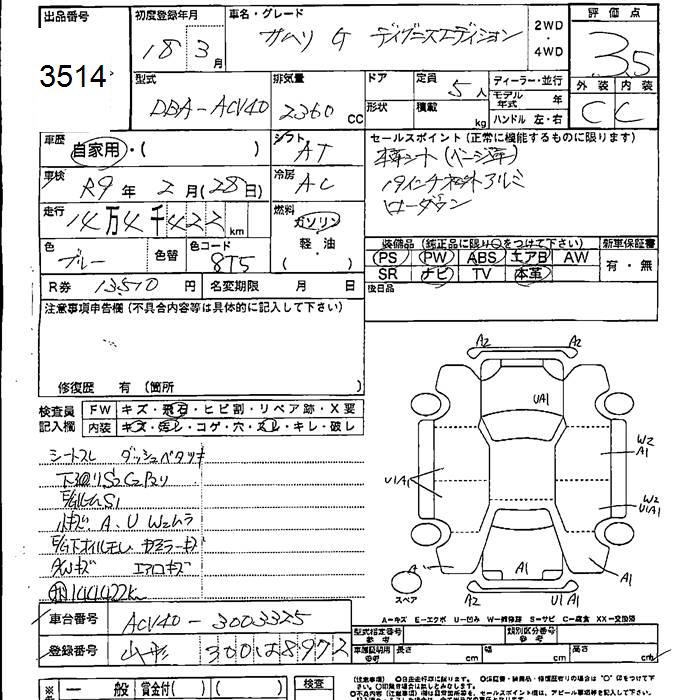 出品番号
3514
初度登録年月
18 3月
車名・グレード
カムリ G ディグニスエディション
2WD
・
4WD
評価点
3.5
外装 内装
C C
型式
DBA-ACV40
排気量
2360 CC
ドア
形状
定員 5人
積載 kg
ディーラー・並行
モデル年式 年
ハンドル 左・右
車歴
自家用・( )
シフト
AT
車検
R9年 2月(28日)
冷房
AC
走行
14万4千422km
燃料
ガソリン
軽・油
( )
色
ブルー
色替
色コード
8T5
R券 13,510円
名変期限 月 日
セールスポイント(正常に機能するものに限ります)
本革シート(ベージュ革)
19インチ社外アルミ
ローダウン
装備品(純正品に限り○をつけて下さい)
新車保証書
PS PW ABS エアB AW
SR ナビ TV 本革
有・無
後日品
注意事項申告欄(不具合内容等は具体的に記入して下さい)
修復歴 有(箇所 )
検査員記入欄
FW キズ・飛石・ヒビ割・リペア跡・X要
内装 キズ・汚レ・コゲ・穴・スレ・キレ・破レ
シートスレ ダッシュベタツキ
下廻リS2C2
A、U W2ムラ
エアロキズ
144422km
A2 A2
UA1
W2
A1
UA1
W2
UA1
A A1
スペア
A2 UA1
A-キズ E-エクボ U-凹み W-修修跡 S-サビ C-腐食 XX-交換済
車台番号 ACV40-3003325
登録番号 山形 300 ほ 8972
型式指定番号
参考
類別区分番号
参考
車庫証明用
参考
長さ cm 幅 cm 高さ cm
一般 賃金付( )( )
検査